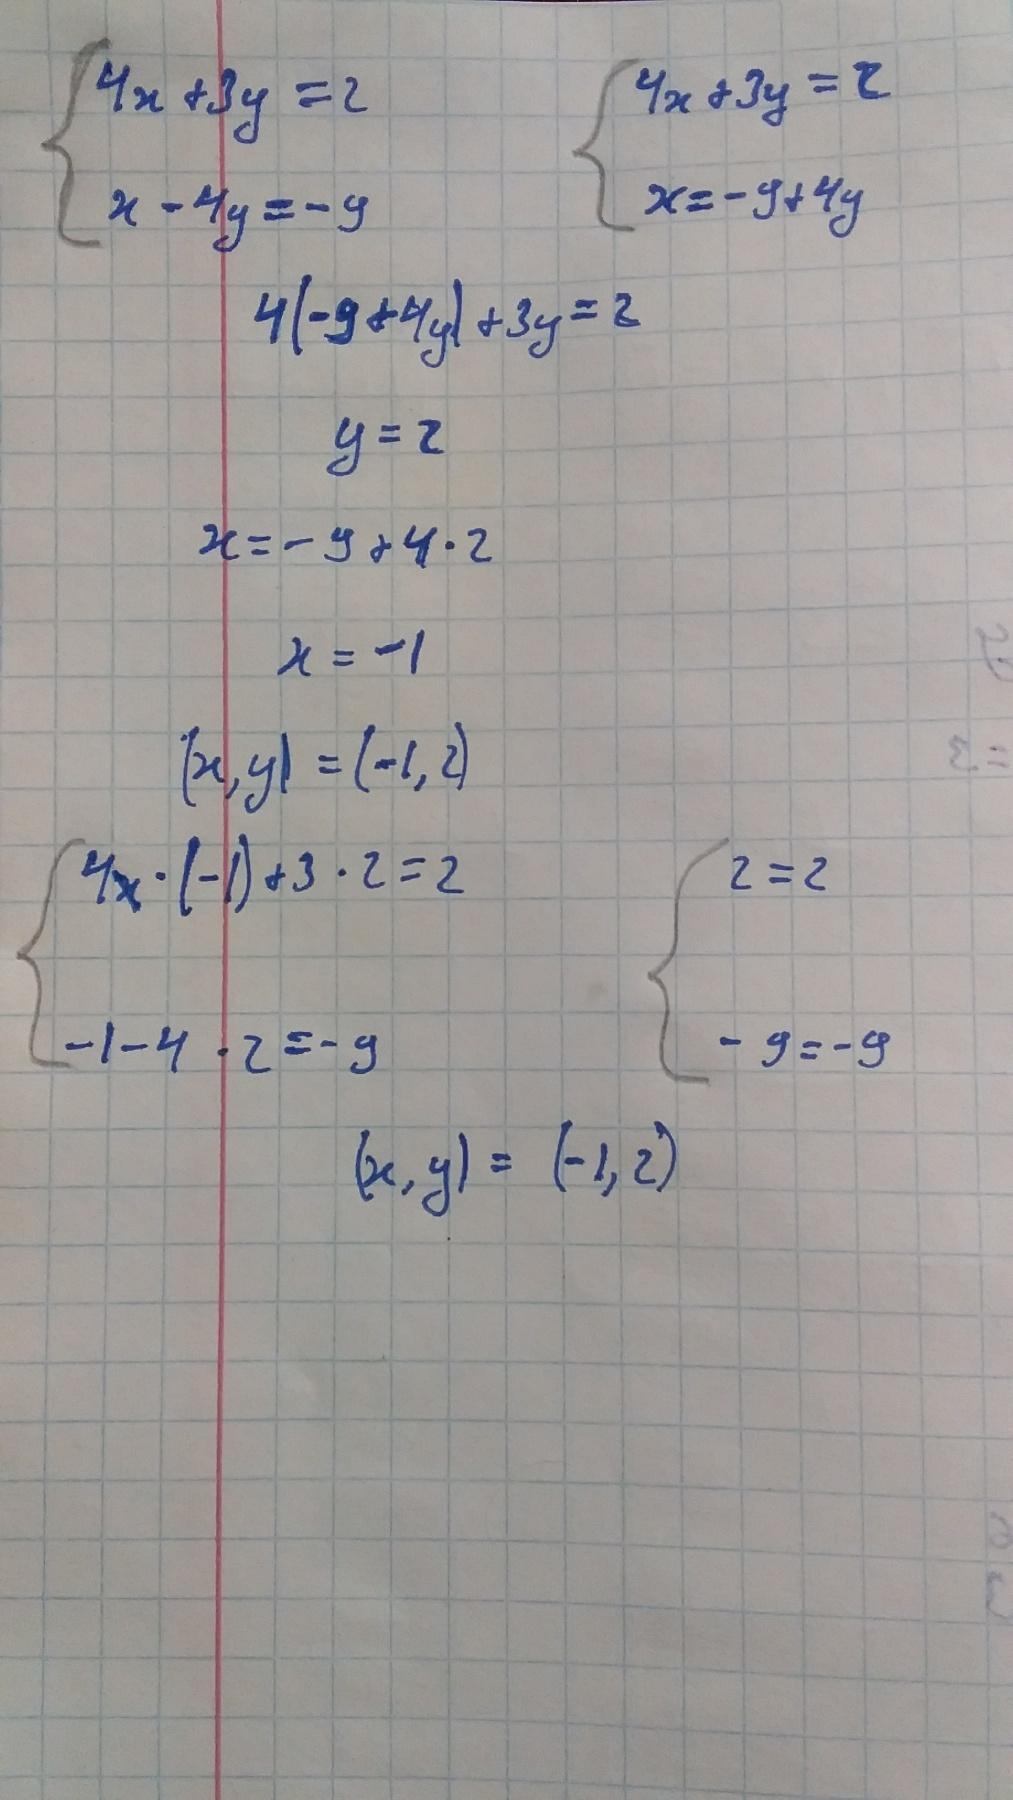 4x+3y=2 4x+3y=2
x-4y=-9 x=-9+4y
4(-9+4y)+3y=2
y=2
x=-9+4·2
x=-1
(x,y)=(-1,2)
4x·(-1)+3·2=2 2=2
-1-4·2=-9 -9=-9
(x,y)=(-1,2)